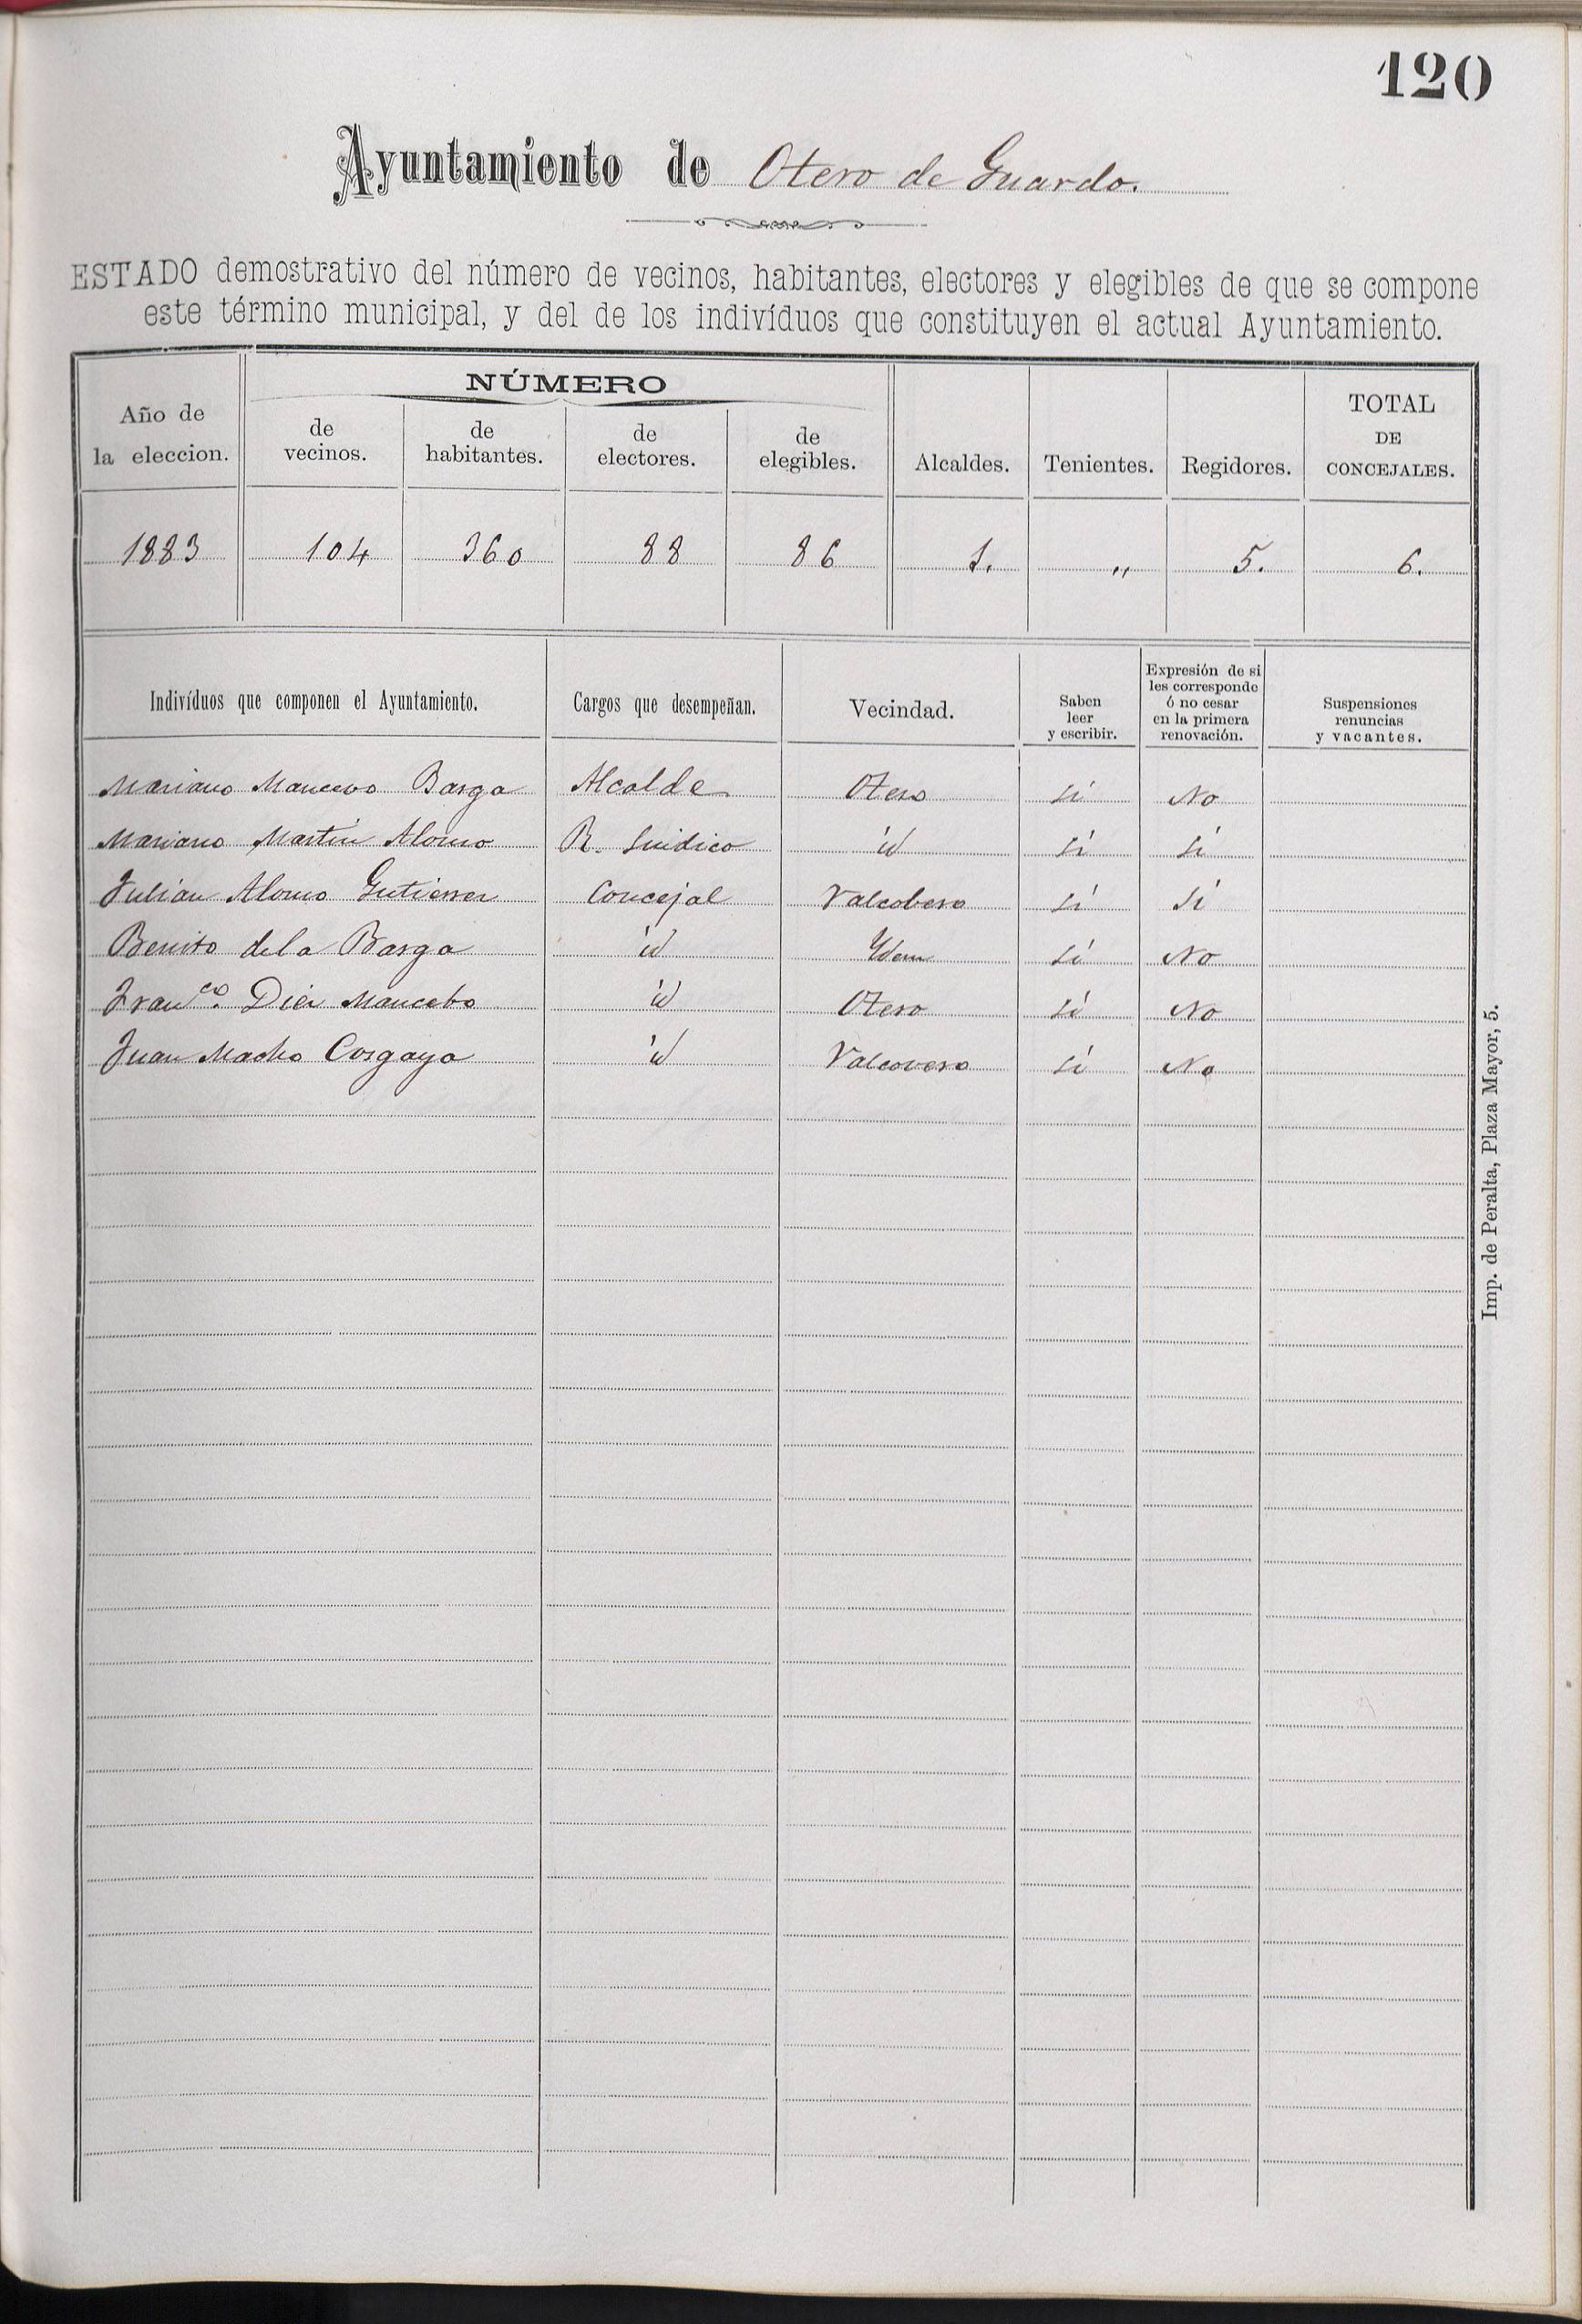 120
Ayuntamiento de Otero de Guardo.
ESTADO demostrativo del número de vecinos, habitantes, electores y elegibles de que se compone
este término municipal, y del de los indivíduos que constituyen el actual Ayuntamiento.
Año de la eleccion. NÚMERO de vecinos. de habitantes. de electores. de elegibles. Alcaldes. Tenientes. Regidores. TOTAL DE CONCEJALES.
1883 104 360 88 86 1. „ 5. 6.
Indivíduos que componen el Ayuntamiento. Cargos que desempeñan. Vecindad. Saben leer y escribir. Expresión de si les corresponde ó no cesar en la primera renovación. Suspensiones renuncias y vacantes.
Mariano Mancevo Barga Alcalde Otero Sí No
Mariano Martin Alonso R. Sindico id Sí Sí
Julian Alonso Gutierrez Concejal Valcobero Sí Sí
Benito de la Barga id Ydem Sí No
Franco. Diez Mancebo id Otero Sí No
Juan Macho Cosgaya id Valcovero Sí No
Imp. de Peralta, Plaza Mayor, 5.